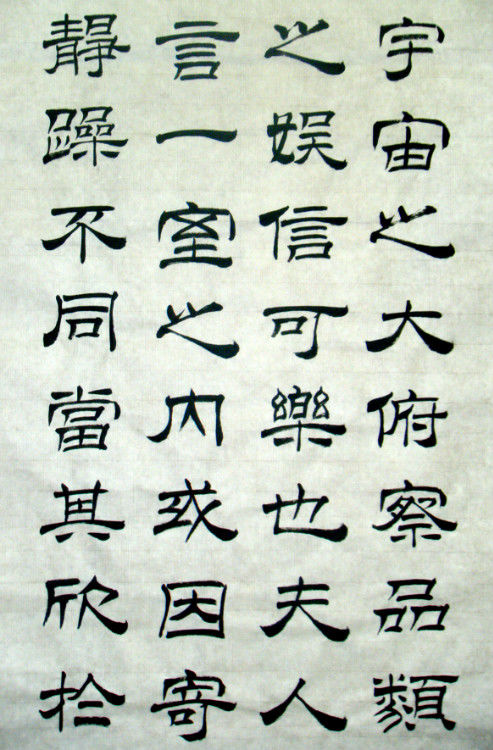 宇宙之大俯察品類
之娱信可樂也夫人
言一室之内或因寄
靜躁不同當其欣扵